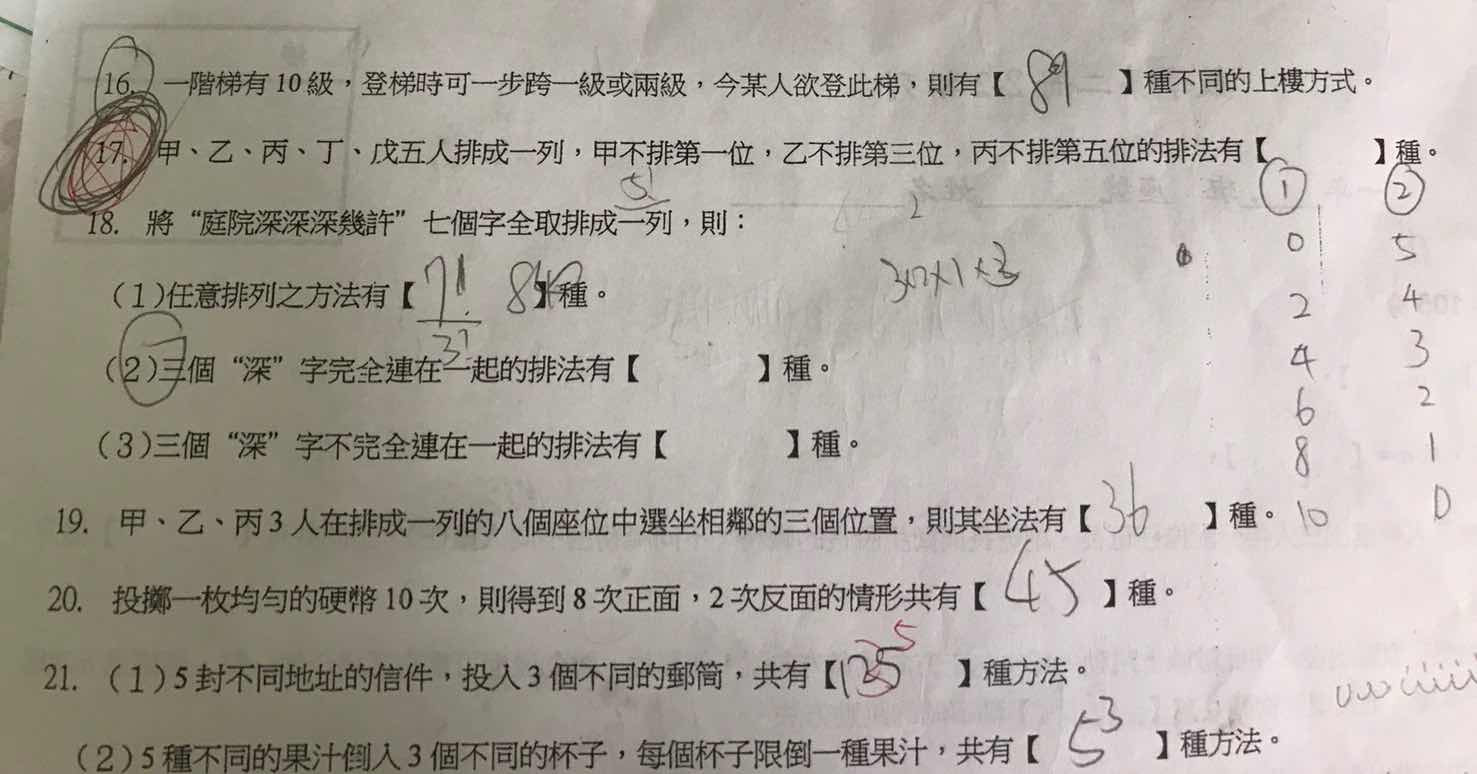 16. 一階梯有 10 級，登梯時可一步跨一級或兩級，今某人欲登此梯，則有【 89 】種不同的上樓方式。
17. 甲、乙、丙、丁、戊五人排成一列，甲不排第一位，乙不排第三位，丙不排第五位的排法有【 】種。
5!
① ②
18. 將“庭院深深深幾許”七個字全取排成一列，則：
2
0 5
3×2×1×3
(1)任意排列之方法有【 7! 840 】種。
3!
2 4
(2)三個“深”字完全連在一起的排法有【 】種。
4 3
6 2
(3)三個“深”字不完全連在一起的排法有【 】種。
8 1
19. 甲、乙、丙 3 人在排成一列的八個座位中選坐相鄰的三個位置，則其坐法有【 36 】種。
10 0
20. 投擲一枚均勻的硬幣 10 次，則得到 8 次正面，2 次反面的情形共有【 45 】種。
21. (1) 5 封不同地址的信件，投入 3 個不同的郵筒，共有【 3⁵ 】種方法。
(2) 5 種不同的果汁倒入 3 個不同的杯子，每個杯子限倒一種果汁，共有【 5³ 】種方法。